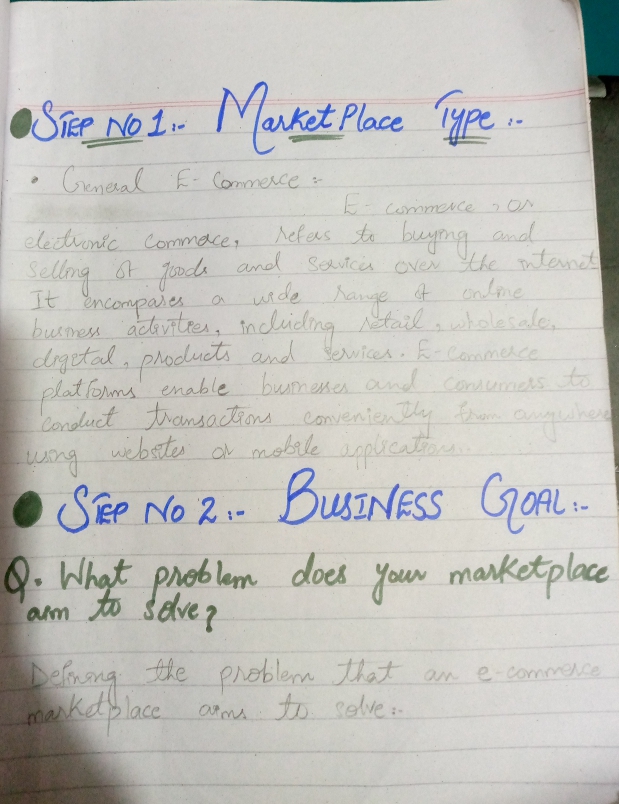 STEP NO 1:- MarketPlace Type :-
• General E-Commerce :-
E-commerce, or
electronic commerce, refers to buying and
selling of goods and services over the internet.
It encompases a wide range of online
business activities, including retail, wholesale,
digital, products and services. E-commerce
platforms enable businesses and consumers to
conduct transactions conveniently from anywhere
using websites or mobile applications.
STEP NO 2:- BUSINESS GOAL:-
Q. What problem does your marketplace
aim to solve?
Defining the problem that an e-commerce
marketplace aims to solve:-